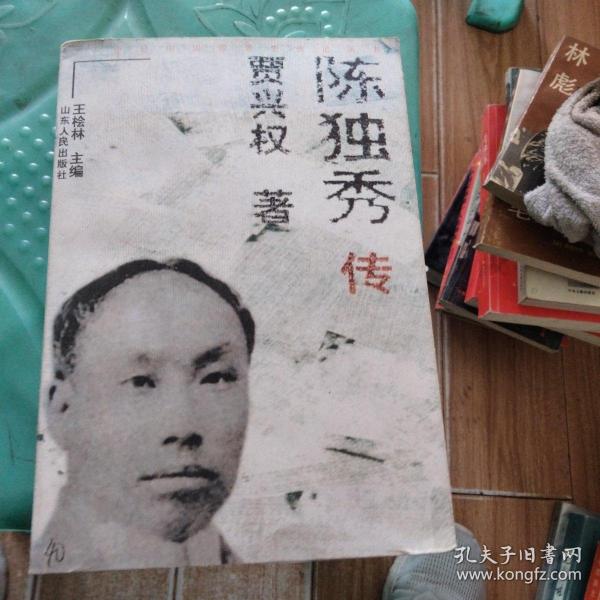 陈独秀 传
贾兴权 著
王桧林 主编
山东人民出版社
40
林彪
孔夫子旧书网
www.kongfz.com